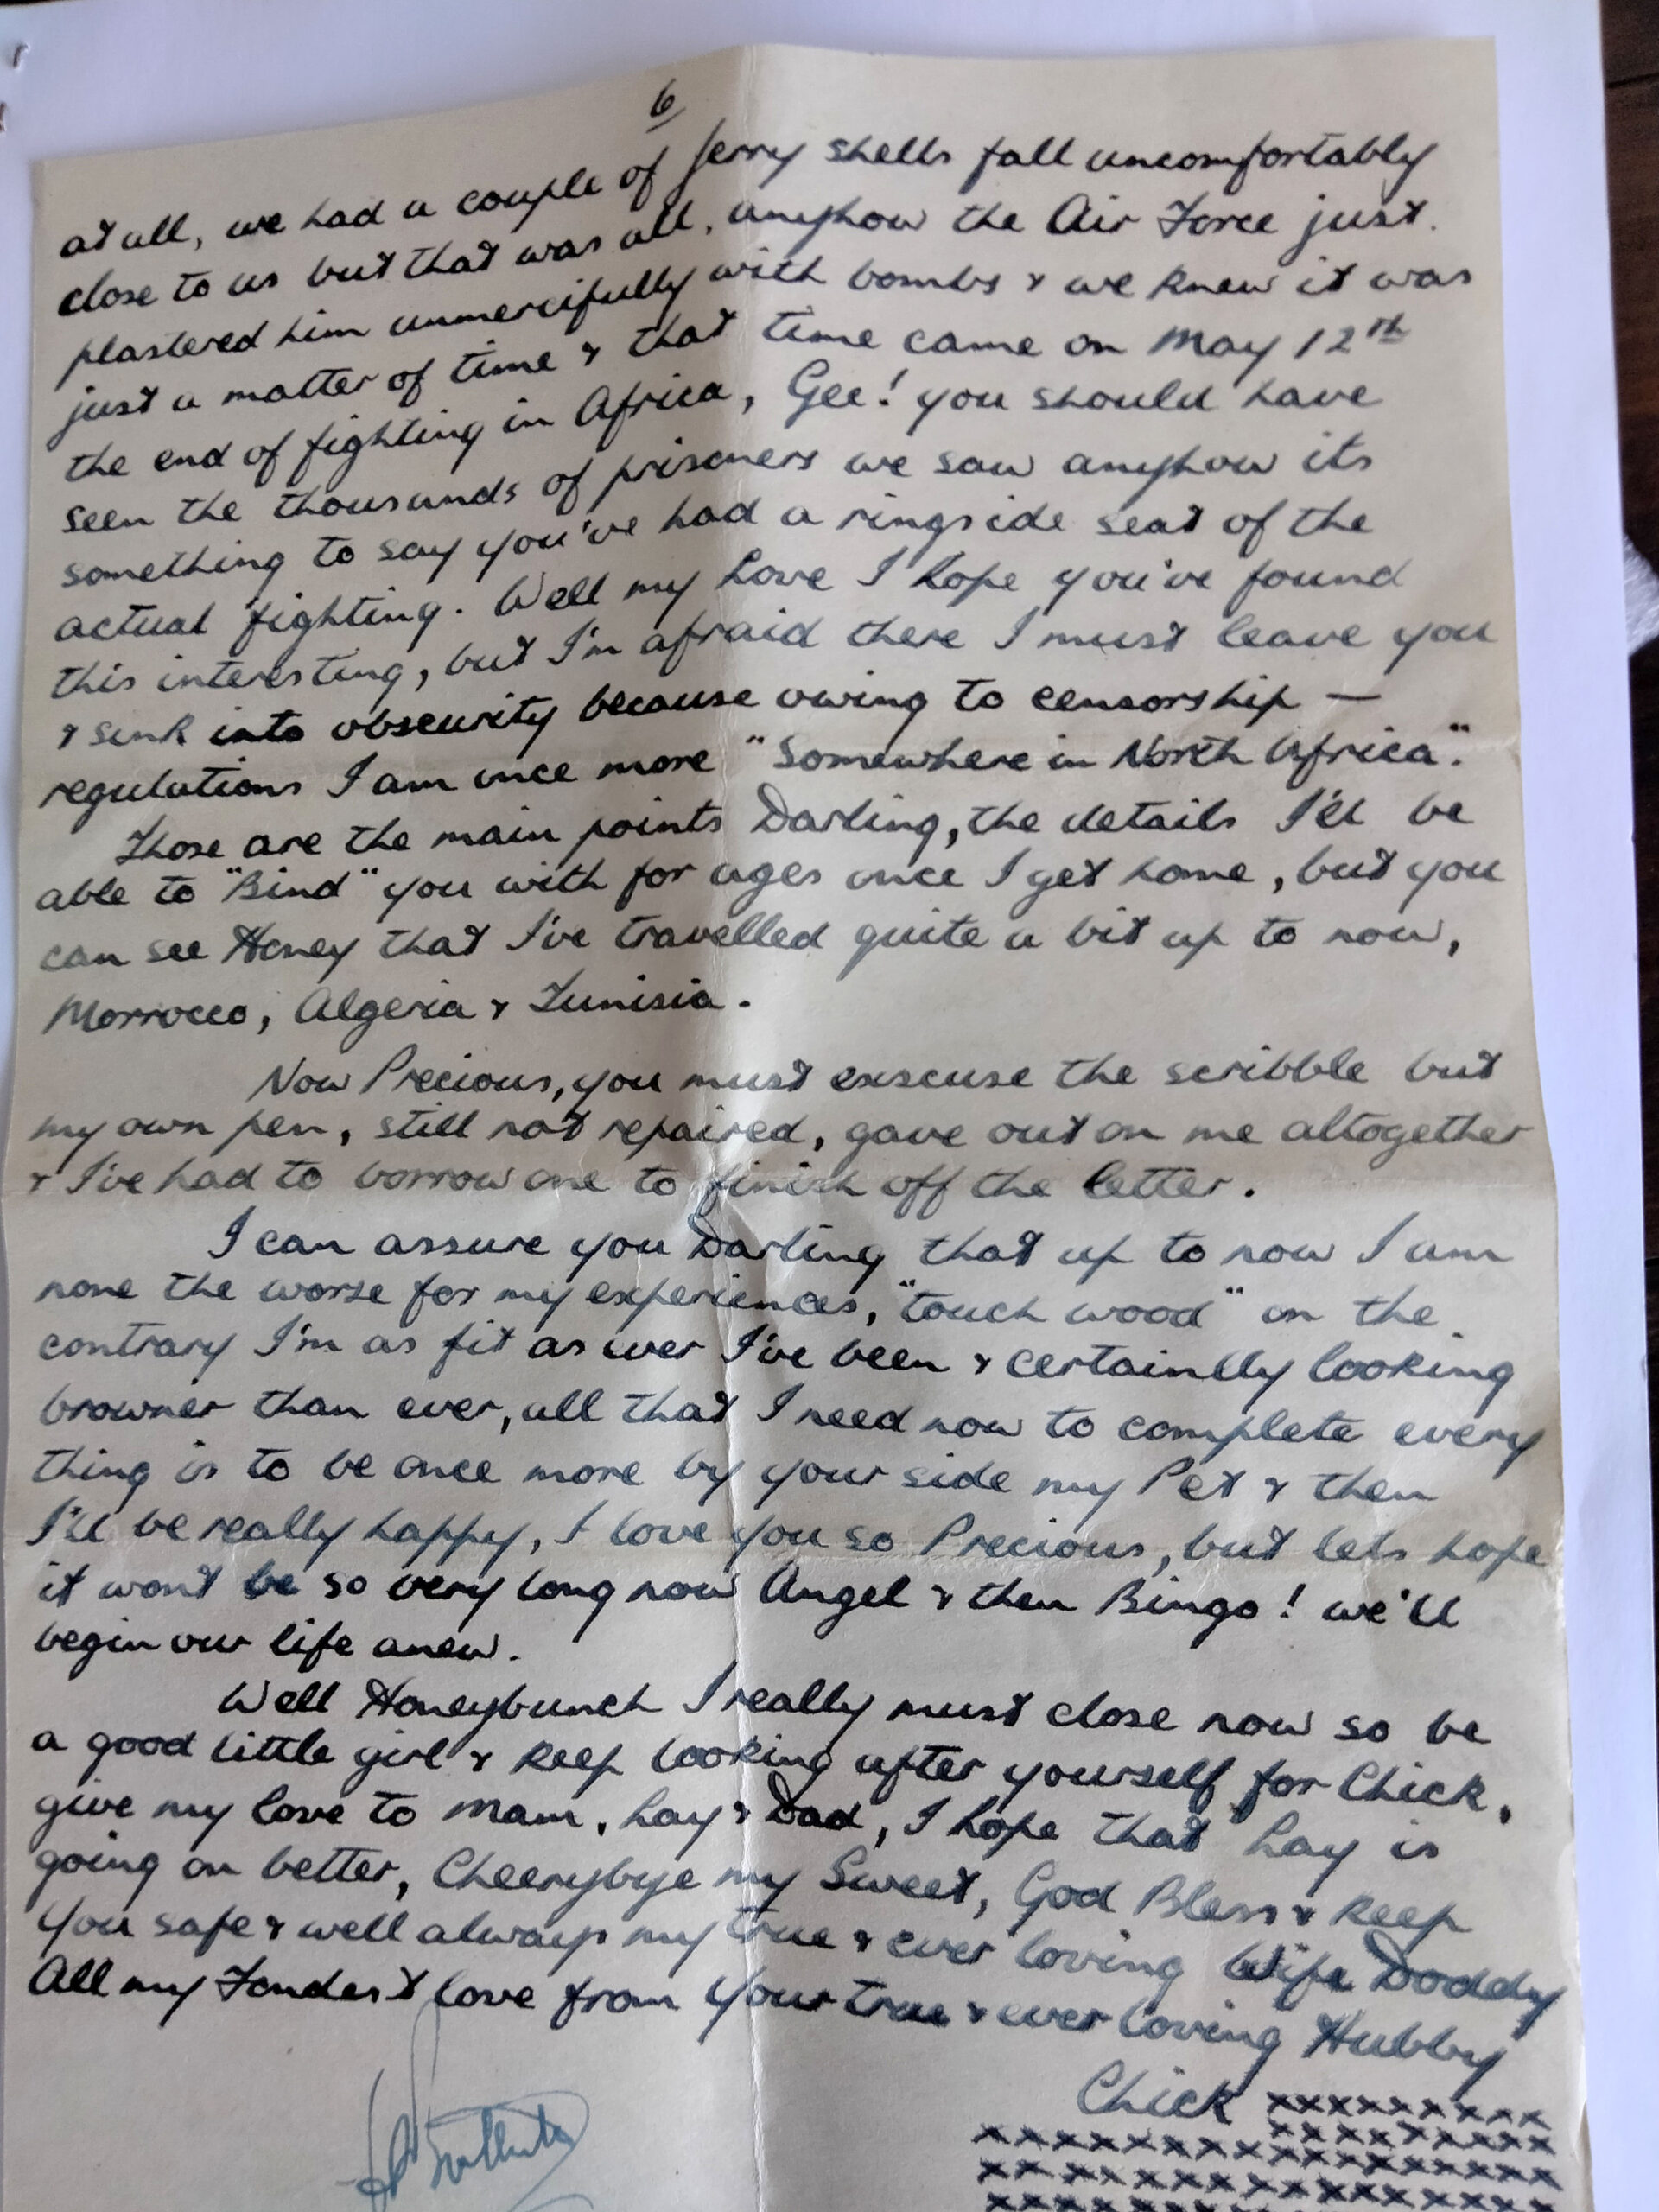 6
at all, we had a couple of Jerry shells fall uncomfortably
close to us but that was all, anyhow the Air Force just
plastered him unmercifully with bombs & we knew it was
just a matter of time & that time came on May 12th
the end of fighting in Africa, Gee! you should have
seen the thousands of prisoners we saw anyhow its
something to say you've had a ringside seat of the
actual fighting. Well my Love I hope you've found
this interesting, but I'm afraid there I must leave you
& sink into obscurity because owing to censorship —
regulations I am once more "Somewhere in North Africa".
Those are the main points Darling, the details I'll be
able to "Bind" you with for ages once I get home, but you
can see Honey that I've travelled quite a bit up to now,
Morrocco, Algeria & Tunisia.
Now Precious, you must exscuse the scribble but
my own pen, still not repaired, gave out on me altogether
& I've had to borrow one to finish off the letter.
I can assure you Darling that up to now I am
none the worse for my experiences, "touch wood" on the
contrary I'm as fit as ever I've been & certainlly looking
browner than ever, all that I need now to complete every
thing is to be once more by your side my Pet & then
I'll be really happy, I love you so Precious, but lets hope
it won't be so very long now Angel & then Bingo! we'll
begin our life anew.
Well Honeybunch I really must close now so be
a good little girl & keep looking after yourself for Chick,
give my love to Mam, Lay & Dad, I hope that Lay is
going on better, Cheerybye my Sweet, God Bless & keep
you safe & well always my true & ever loving Wife Doddy
All my Fondest love from your true & ever loving Hubby
Chick xxxxxxxxxx
xxxxxxxxxxxxxxxxxx
xxxxxxxxxxxxxxxxxx
xxxxxxxxxxxxxxxxxx